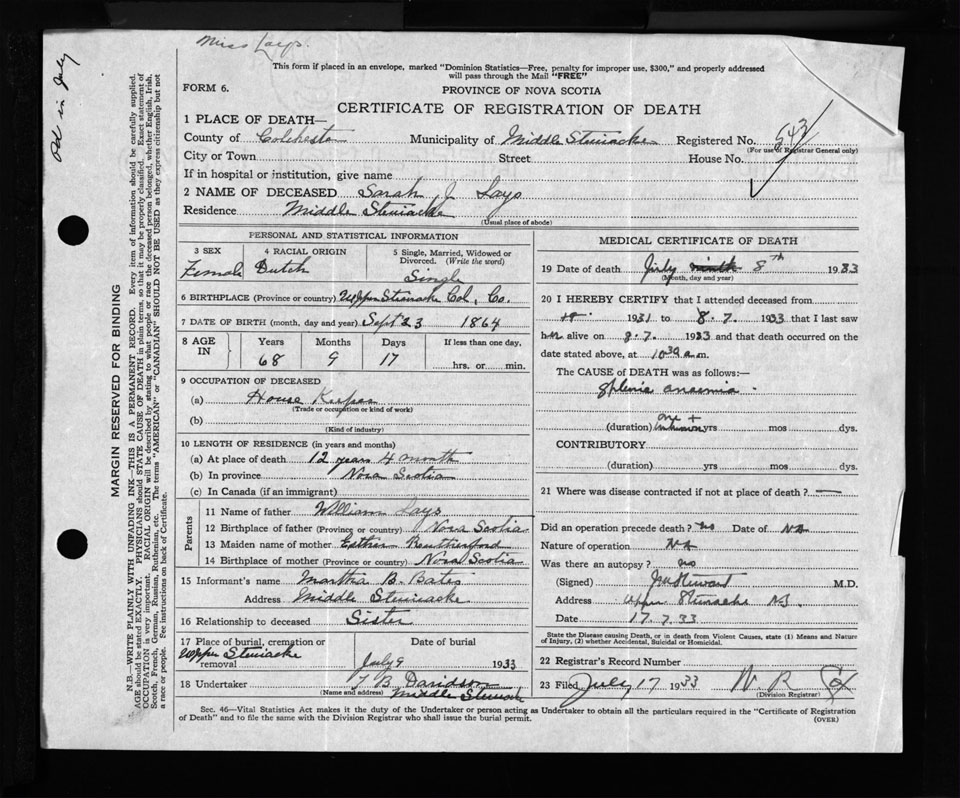 Miss Lays.
Ptd in July
This form if placed in an envelope, marked "Dominion Statistics—Free, penalty for improper use, $300," and properly addressed
will pass through the Mail "FREE"
FORM 6.
PROVINCE OF NOVA SCOTIA
CERTIFICATE OF REGISTRATION OF DEATH
1 PLACE OF DEATH—
County of Colchester Municipality of Middle Stewiacke Registered No. 543
(For use of Registrar General only)
City or Town Street House No.
If in hospital or institution, give name
2 NAME OF DECEASED Sarah J. Lays
Residence Middle Stewiacke
(Usual place of abode)
PERSONAL AND STATISTICAL INFORMATION
3 SEX 4 RACIAL ORIGIN 5 Single, Married, Widowed or
Divorced. (Write the word)
Female Dutch Single
6 BIRTHPLACE (Province or country) Upper Stewiacke Col. Co.
7 DATE OF BIRTH (month, day and year) Sept 23 1864
8 AGE IN Years Months Days If less than one day,
68 9 17 hrs. or min.
9 OCCUPATION OF DECEASED
(a) House Keeper
(Trade or occupation or kind of work)
(b)
(Kind of industry)
10 LENGTH OF RESIDENCE (in years and months)
(a) At place of death 12 years 4 month
(b) In province Nova Scotia
(c) In Canada (if an immigrant)
Parents
11 Name of father William Lays
12 Birthplace of father (Province or country) Nova Scotia
13 Maiden name of mother Esther Reutherford
14 Birthplace of mother (Province or country) Nova Scotia
15 Informant's name Martha B. Bates
Address Middle Stewiacke
16 Relationship to deceased Sister
17 Place of burial, cremation or removal Date of burial
Upper Stewiacke July 9 1933
18 Undertaker T B. Davidson
(Name and address) Middle Stewiacke
MEDICAL CERTIFICATE OF DEATH
19 Date of death July ninth 8th 1933
(Month, day and year)
20 I HEREBY CERTIFY that I attended deceased from
1931 to 8.7. 1933 that I last saw
her alive on 8.7. 1933 and that death occurred on the
date stated above, at 10 30 a.m.
The CAUSE of DEATH was as follows:—
Splenic anaemia.
one +
(duration) unknown yrs mos. dys.
CONTRIBUTORY
(duration) yrs mos. dys.
21 Where was disease contracted if not at place of death? —
Did an operation precede death? no Date of NA
Nature of operation NA
Was there an autopsy? no
(Signed) M.D.
Address Upper Stewiacke N.S.
Date 17.7.33
State the Disease causing Death, or in death from Violent Causes, state (1) Means and Nature
of Injury, (2) whether Accidental, Suicidal or Homicidal.
22 Registrar's Record Number
23 Filed July 17 1933 W. R
(Division Registrar)
Sec. 46—Vital Statistics Act makes it the duty of the Undertaker or person acting as Undertaker to obtain all the particulars required in the "Certificate of Registration
of Death" and to file the same with the Division Registrar who shall issue the burial permit.
(OVER)
MARGIN RESERVED FOR BINDING
N.B.—WRITE PLAINLY WITH UNFADING INK—THIS IS A PERMANENT RECORD. Every item of information should be carefully supplied.
AGE should be stated EXACTLY. PHYSICIANS should STATE CAUSE OF DEATH in plain terms, so that it may be properly classified. Exact statement of
OCCUPATION is very important. RACIAL ORIGIN will be described by stating to what people or race the deceased person belonged, whether English, Irish,
Scotch, French, German, Russian, Ruthenian, etc. The terms "AMERICAN" or "CANADIAN" SHOULD NOT BE USED as they express citizenship but not
a race or people. See instructions on back of Certificate.